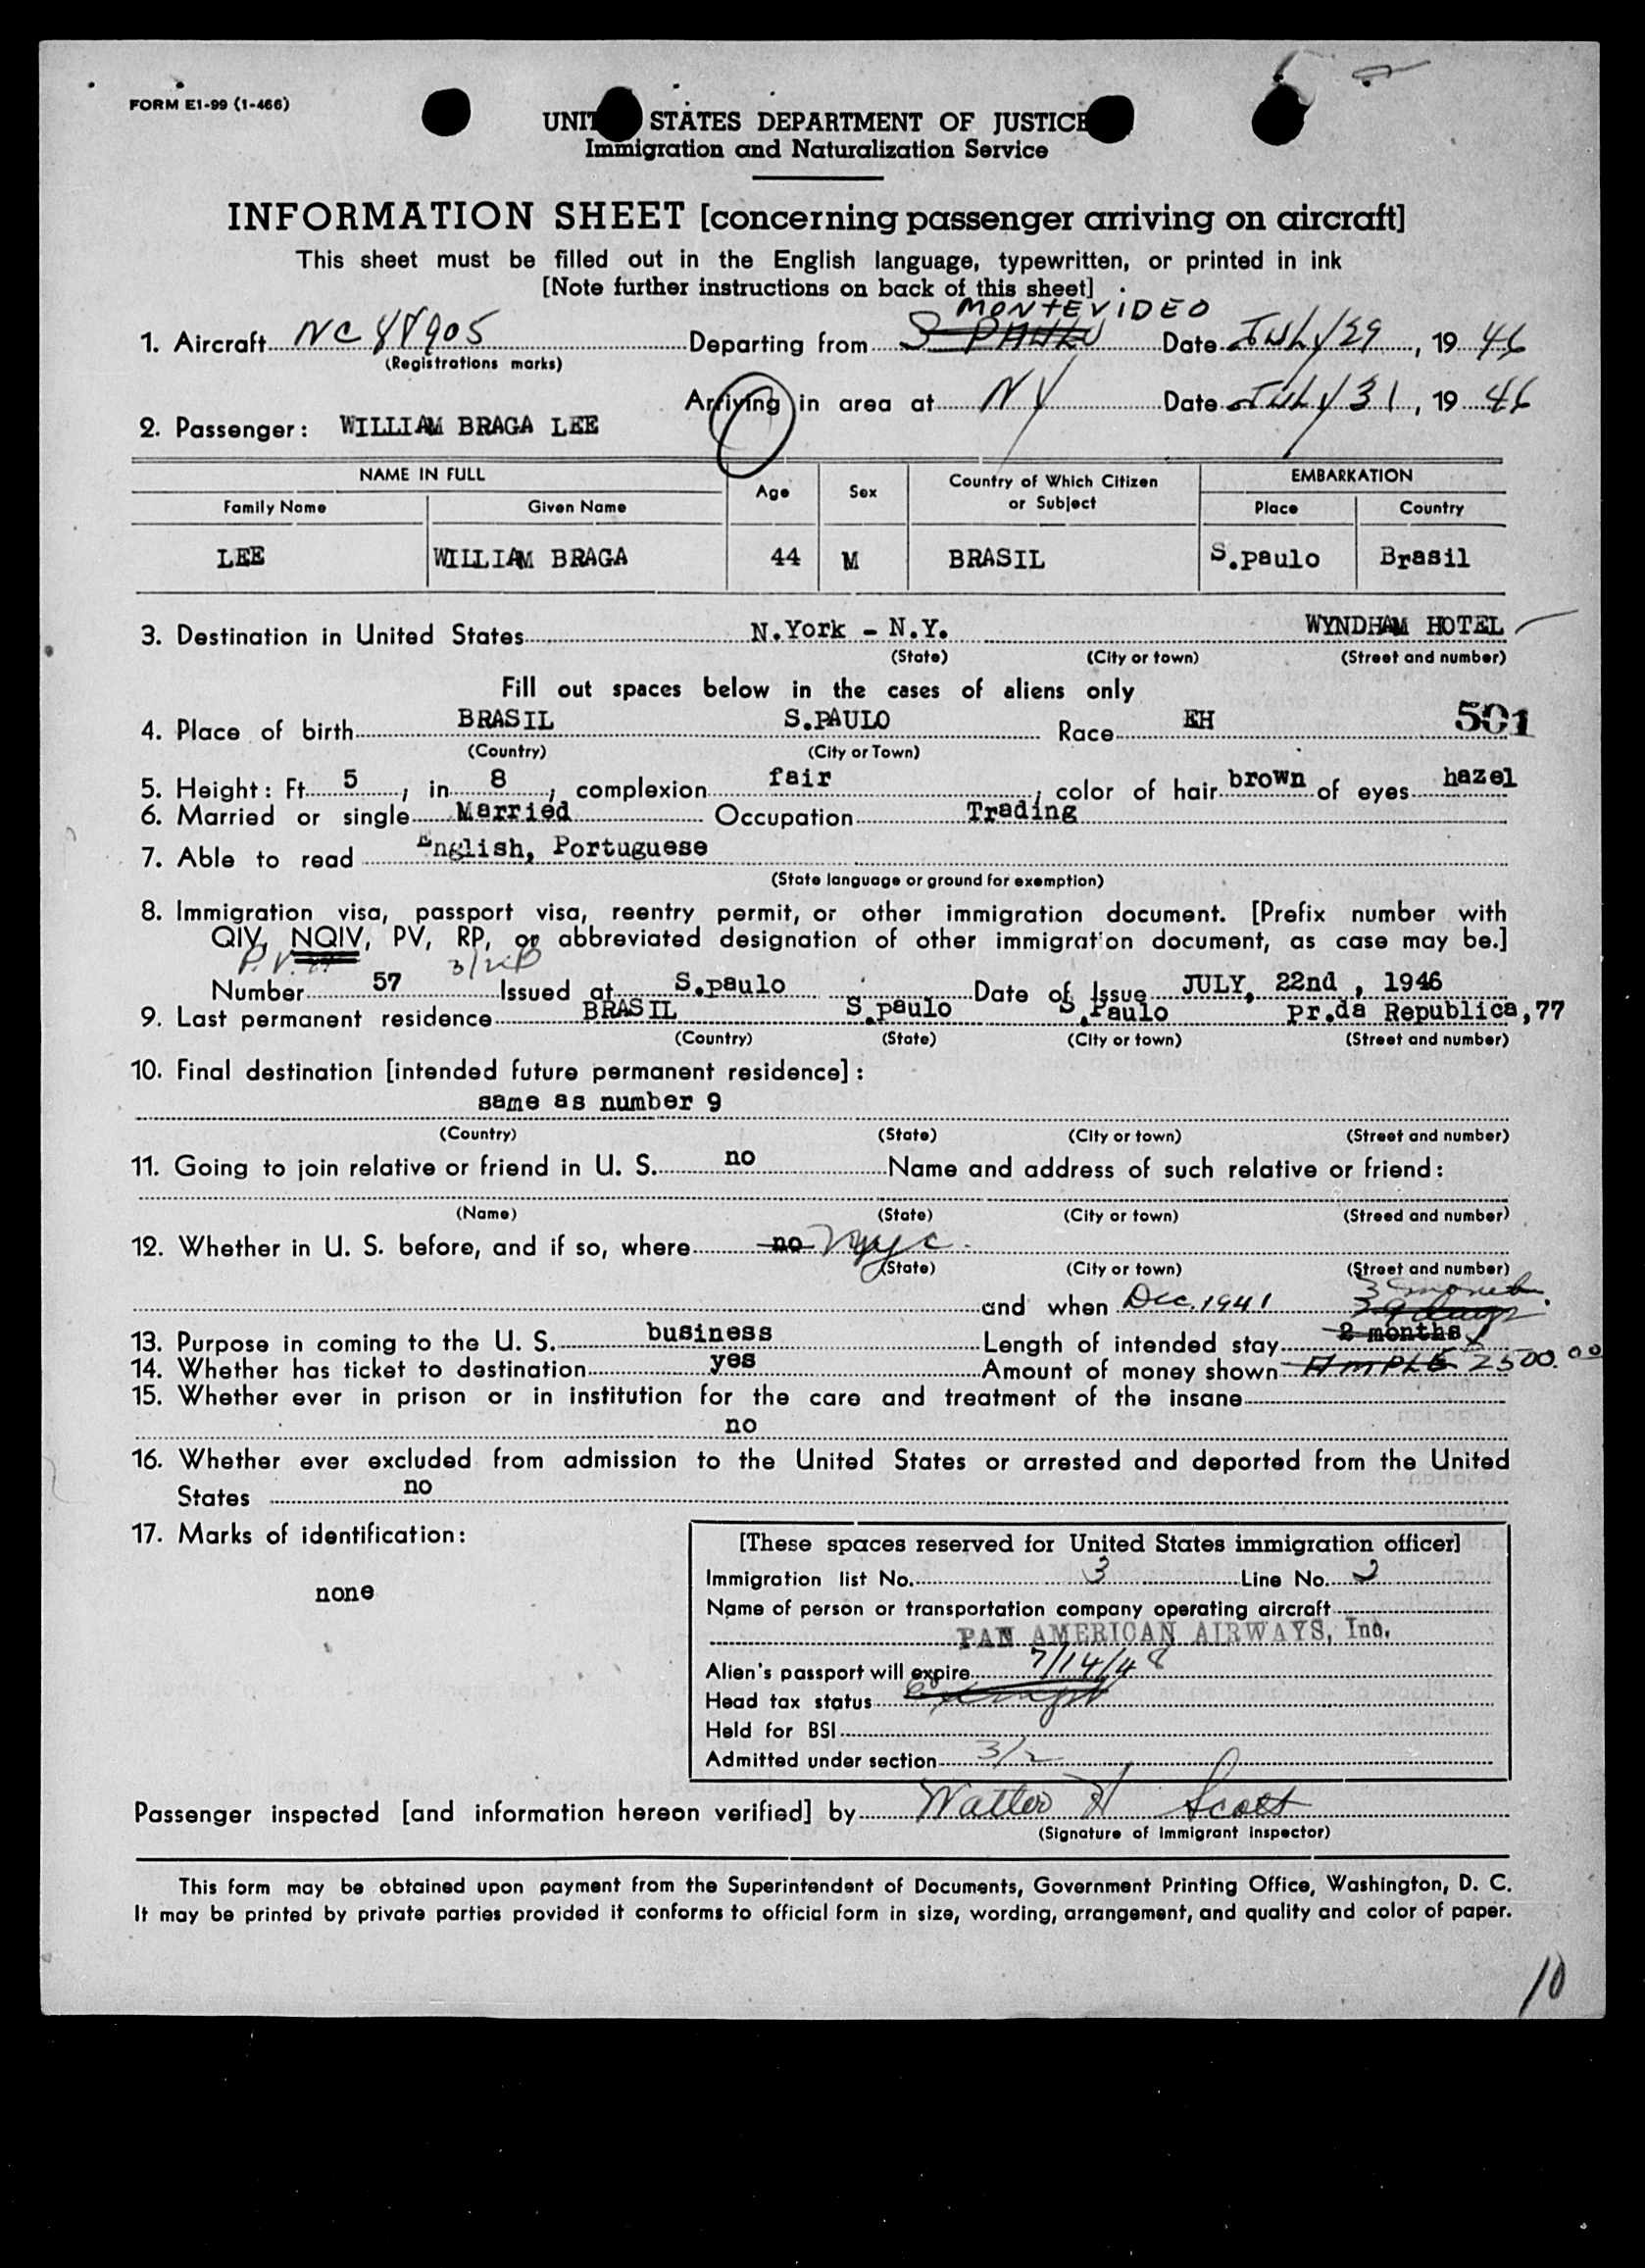 FORM E1-99 (1-466)
UNI STATES DEPARTMENT OF JUSTICE
Immigration and Naturalization Service
INFORMATION SHEET [concerning passenger arriving on aircraft]
This sheet must be filled out in the English language, typewritten, or printed in ink
[Note further instructions on back of this sheet]
MONTEVIDEO
1. Aircraft NC 88905 Departing from S PAULO Date JULY 29, 19 46
(Registrations marks)
Arriving in area at NY Date JULY 31, 19 46
2. Passenger: WILLIAM BRAGA LEE
NAME IN FULL Age Sex Country of Which Citizen or Subject EMBARKATION
Family Name Given Name Place Country
LEE WILLIAM BRAGA 44 M BRASIL S.paulo Brasil
3. Destination in United States N.York - N.Y. WYNDHAM HOTEL
(State) (City or town) (Street and number)
Fill out spaces below in the cases of aliens only
4. Place of birth BRASIL S.PAULO Race EH 501
(Country) (City or Town)
5. Height: Ft. 5, in 8; complexion fair; color of hair brown of eyes hazel
6. Married or single Married Occupation Trading
7. Able to read English, Portuguese
(State language or ground for exemption)
8. Immigration visa, passport visa, reentry permit, or other immigration document. [Prefix number with
QIV, NQIV, PV, RP, or abbreviated designation of other immigration document, as case may be.]
P.V. 3/2
Number 57 Issued at S.paulo Date of Issue JULY, 22nd, 1946
9. Last permanent residence BRASIL S.paulo S.Paulo Pr.da Republica,77
(Country) (State) (City or town) (Street and number)
10. Final destination [intended future permanent residence]:
same as number 9
(Country) (State) (City or town) (Street and number)
11. Going to join relative or friend in U. S. no Name and address of such relative or friend:
(Name) (State) (City or town) (Streed and number)
12. Whether in U. S. before, and if so, where no NYC.
(State) (City or town) (Street and number)
3 months.
and when Dec. 1941 39 days
13. Purpose in coming to the U. S. business Length of intended stay 2 months
14. Whether has ticket to destination yes Amount of money shown AMPLE 2500.00
15. Whether ever in prison or in institution for the care and treatment of the insane
no
16. Whether ever excluded from admission to the United States or arrested and deported from the United
States no
17. Marks of identification:
none
[These spaces reserved for United States immigration officer]
Immigration list No. 3 Line No. 2
Name of person or transportation company operating aircraft
PAN AMERICAN AIRWAYS, Inc.
Alien's passport will expire 7/14/48
Head tax status Exempt
Held for BSI
Admitted under section 3/2
Passenger inspected [and information hereon verified] by Walter H Scott
(Signature of Immigrant Inspector)
This form may be obtained upon payment from the Superintendent of Documents, Government Printing Office, Washington, D. C.
It may be printed by private parties provided it conforms to official form in size, wording, arrangement, and quality and color of paper.
10